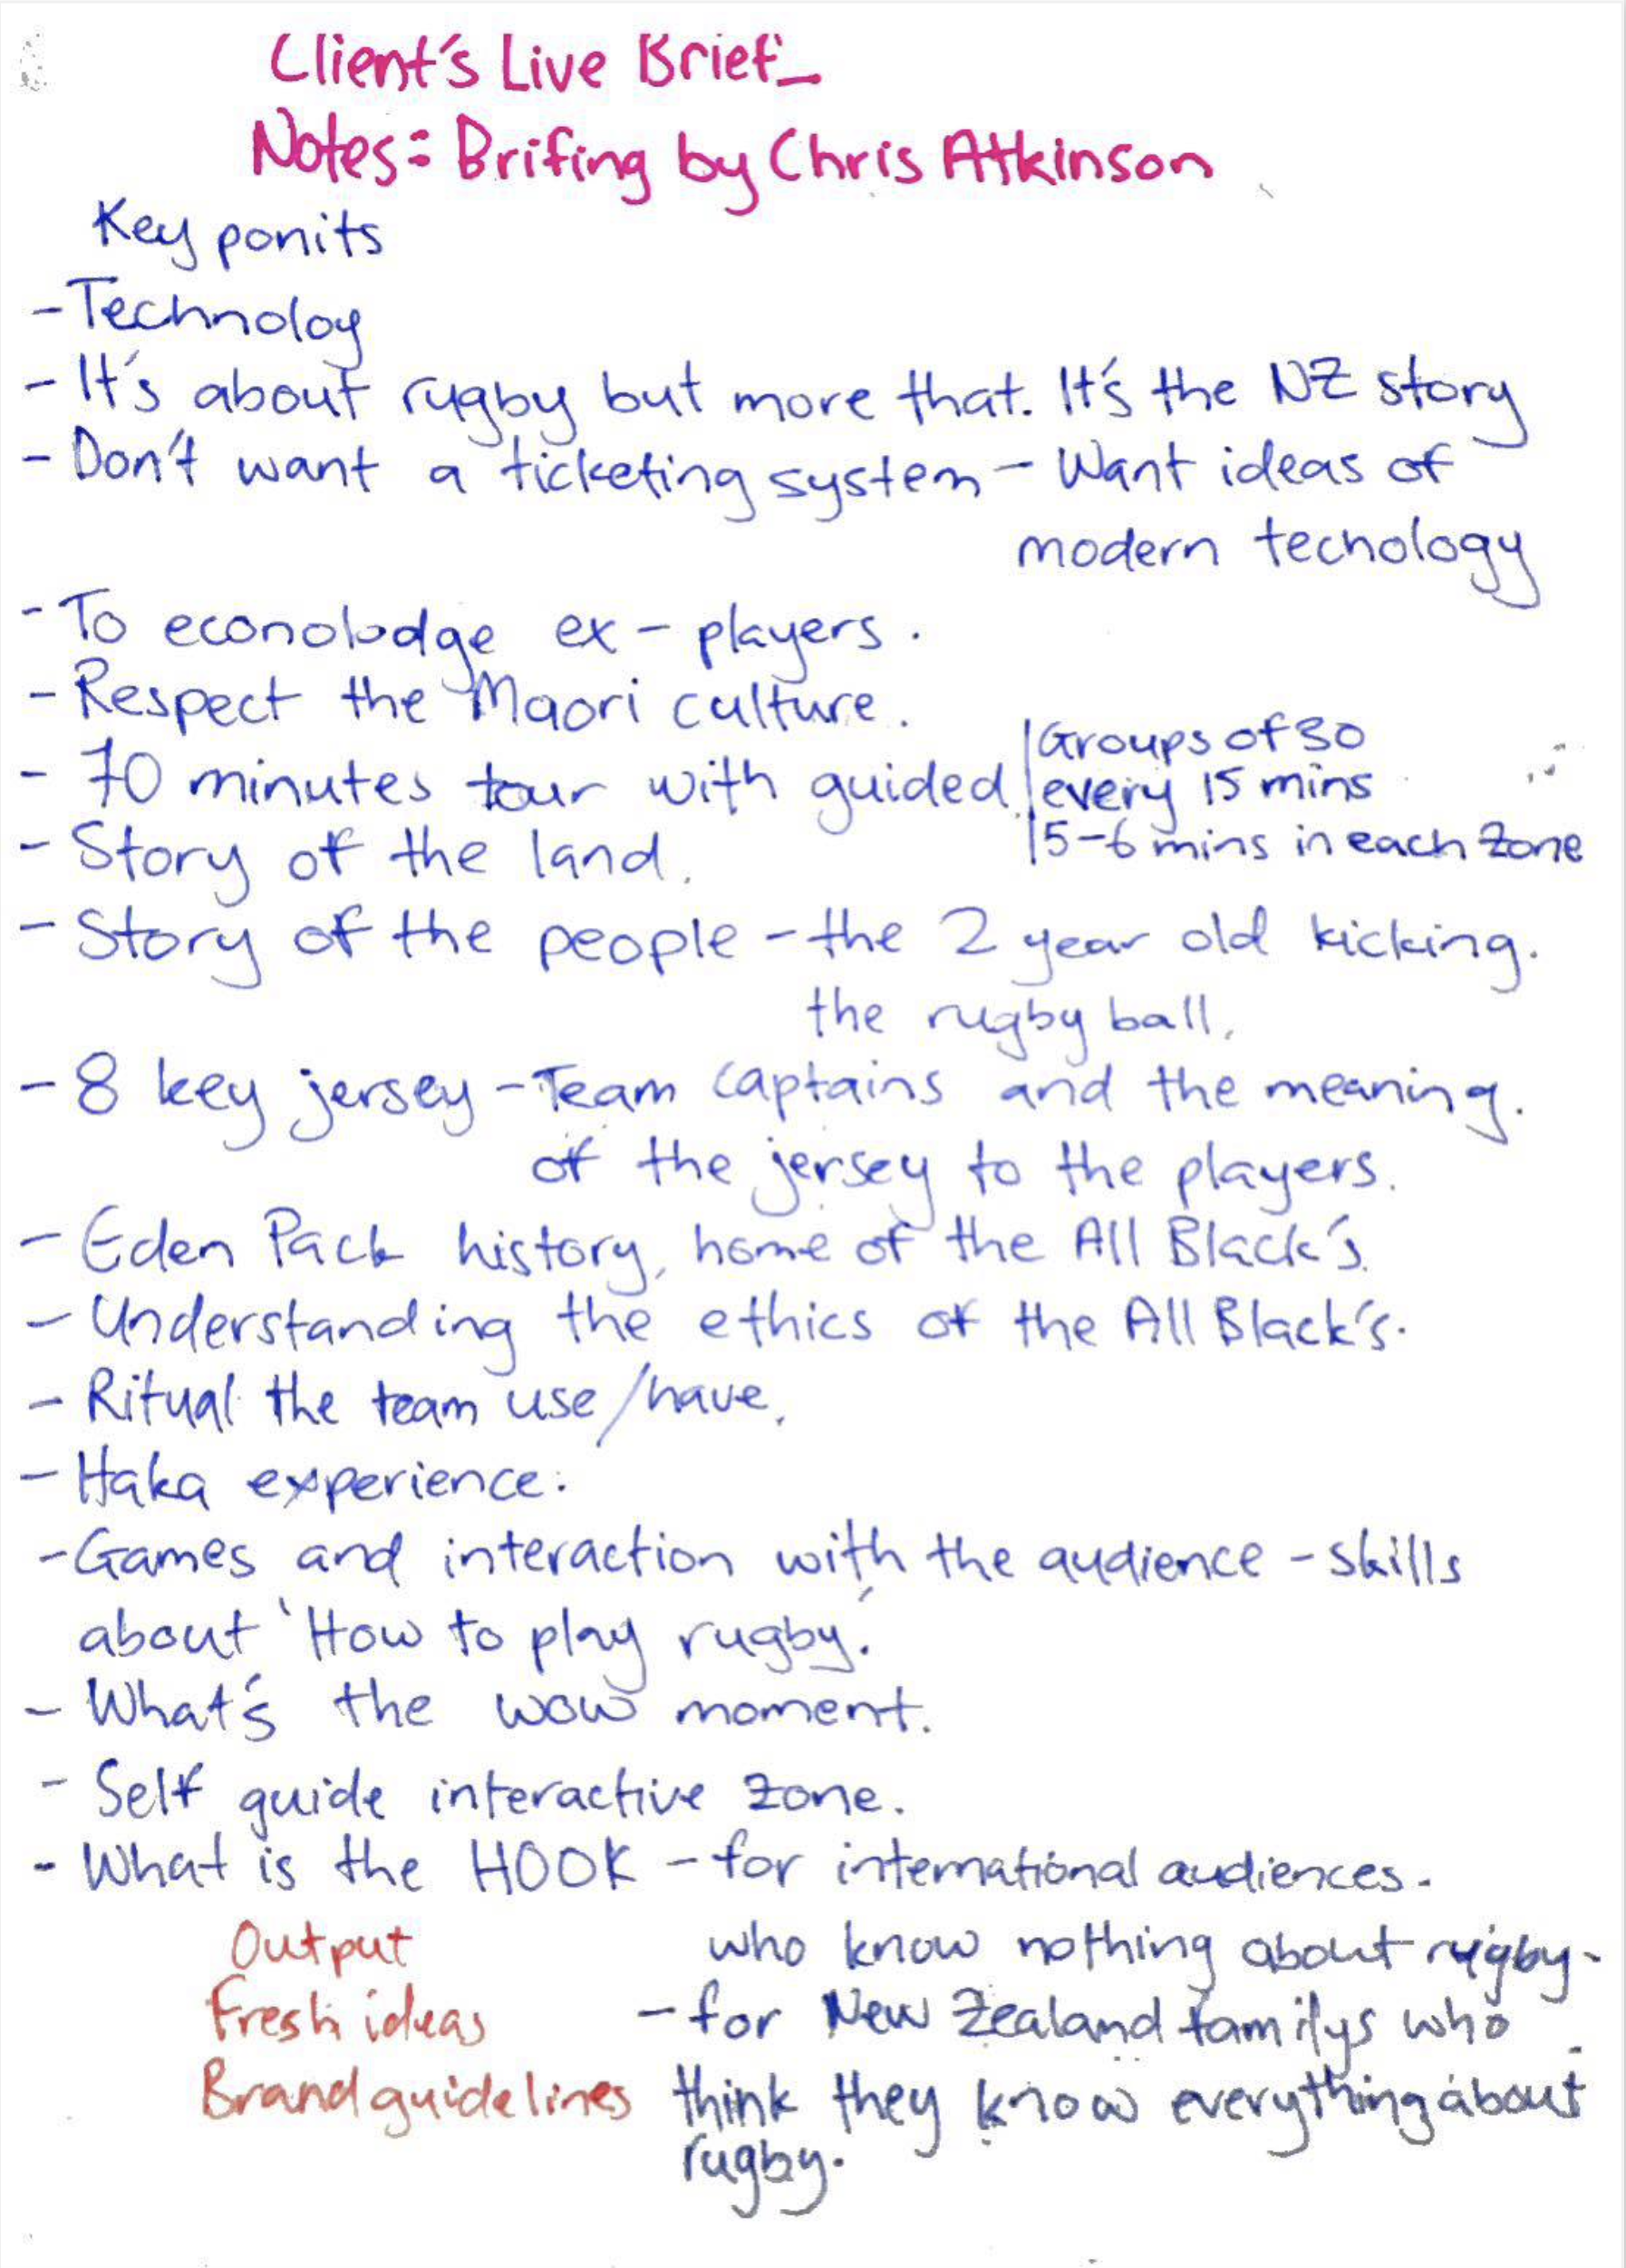 Client's Live Brief_
Notes: Brifing by Chris Atkinson
Key ponits
- Technoloy
- It's about rugby but more that. It's the NZ story
- Don't want a ticketing system - Want ideas of
modern techology
- To econolodge ex-players.
- Respect the Maori culture.
- 70 minutes tour with guided.
Groups of 30
every 15 mins
5-6 mins in each zone
- Story of the land.
- Story of the people - the 2 year old kicking.
the rugby ball.
- 8 key jersey - Team captains and the meaning.
of the jersey to the players.
- Eden Pack history, home of the All Black's.
- Understanding the ethics of the All Black's.
- Ritual the team use/have.
- Haka experience.
- Games and interaction with the audience - skills
about 'How to play rugby.'
- What's the wow moment.
- Self guide interactive zone.
- What is the HOOK - for international audiences.
who know nothing about rugby.
- for New Zealand familys who
think they know everything about
rugby.
Output
Fresh ideas
Brand guidelines